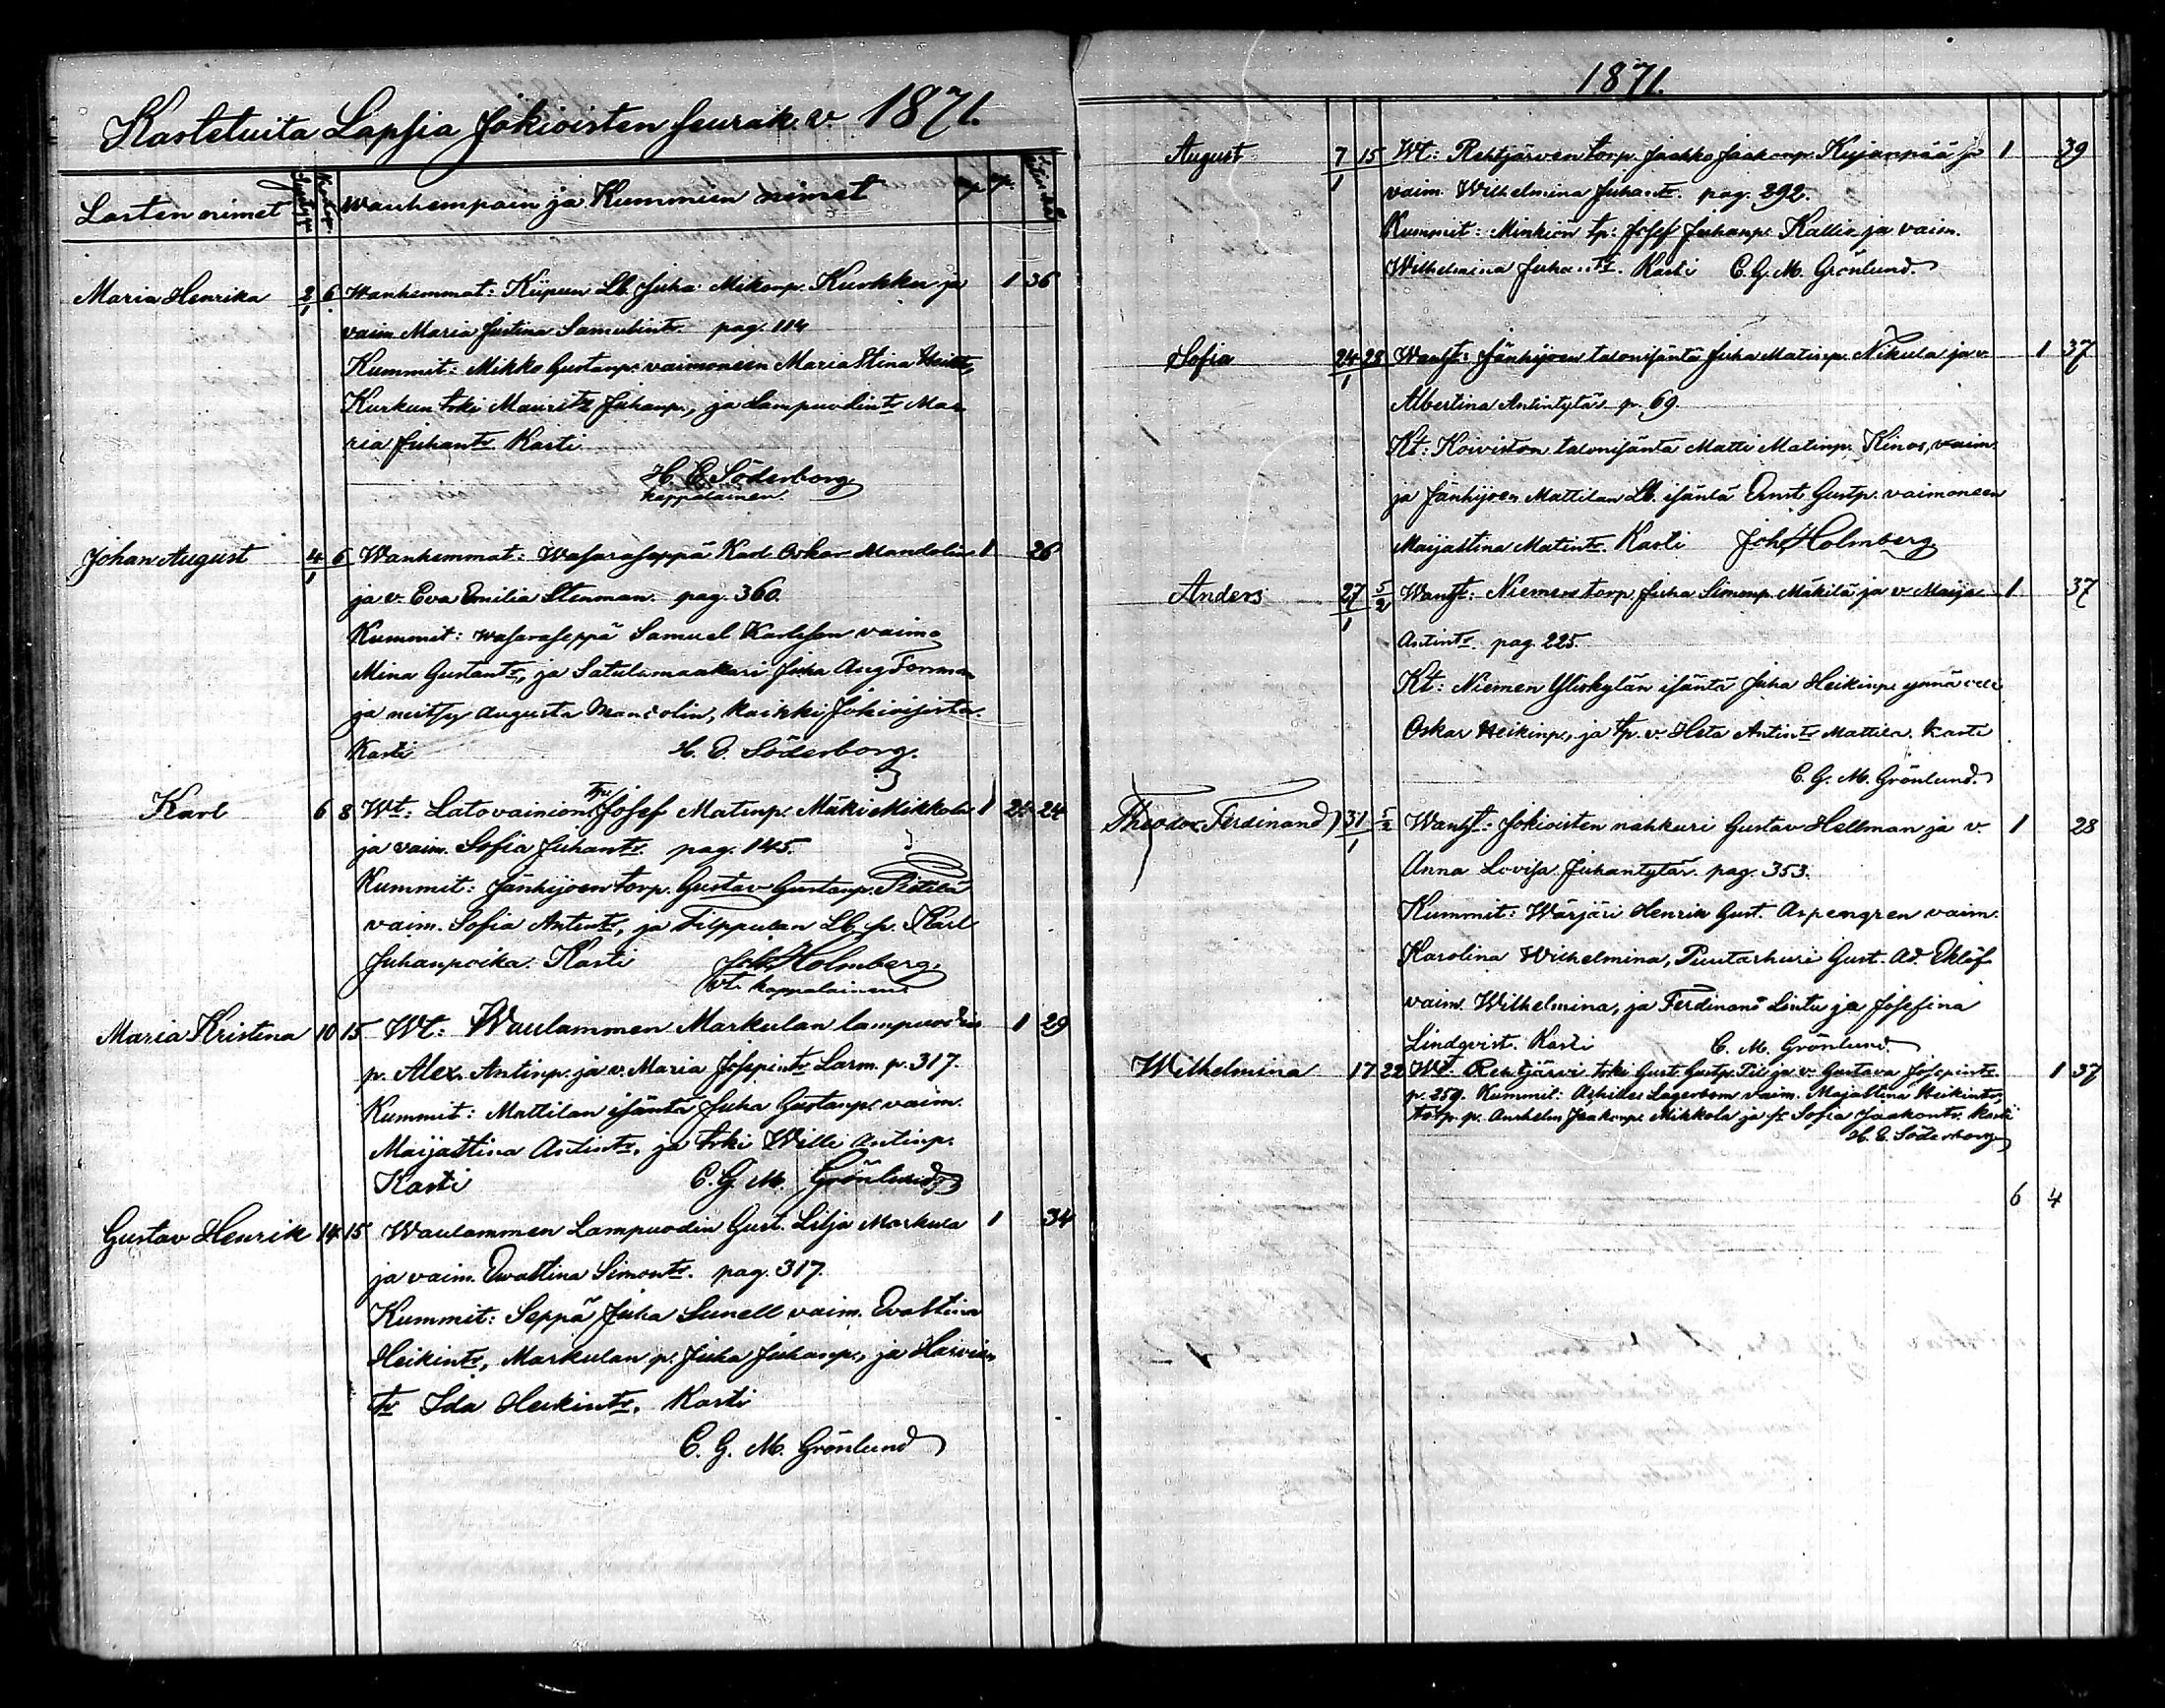 Kastetuita Lapsia Jokioisten seurak. v. 1871.
Lasten nimet Wanhempain ja Kummien nimet
Maria Henrika 2/1 6 Wanhemmat: Kiipun Lb. Juha Mikonp. Kurkku ja 1 36
vaim. Maria Justina Samulintr. pag. 114
Kummit: Mikko Gustanp. vaimoneen Maria Stina Heikk,
Kurkun trki Mauritz Juhanp., ja Lampuodintr Ma-
ria Juhantr. Kasti
H. E. Söderborg
kappalainen.
Johan August 4/1 6 Wanhemmat: Wasaraseppä Karl Oskar Mandolin 1 26
ja v. Eva Emilia Stenman. pag. 360.
Kummit: wasaraseppä Samuel Karlsson vaim.
Mina Gustantr, ja Satulamaakari Juha Aug Forsman
ja neitsy Augusta Mandolin, kaikki Jokioisista.
Kasti H. E. Söderborg.
Karl 6 8 Wt: Latovainion Tp. Josef Matinp. Mäki Mikkola 1 24
ja vaim. Sofia Juhantr. pag. 145.
Kummit: Jänhijoen torp. Gustav Gustanp. Pietilä
vaim. Sofia Antintr, ja Filppulan Lb. p. Karl
Juhanpoika. Kasti Joh. Holmberg.
vt. kappalainen.
Maria Kristina 10 15 Wt: Waulammen Markulan lampuodin 1 29
p. Alex. Antinp. ja v. Maria Josepintr Larm. p. 317.
Kummit: Mattilan isäntä Juha Gustanp. vaim.
Maijastina Antintr, ja trki Wille Antinp.
Kasti C. G. M. Grönlund
Gustav Henrik 14 15 Waulammen Lampuodin Gust. Lilja Markula 1 34
ja vaim. Evastina Simontr. pag. 317.
Kummit: Seppä Juha Sunell vaim. Evastina
Heikintr, Markulan p. Juha Juhanp., ja Harvian
tr Ida Heikintr. Kasti
C. G. M. Grönlund
1871.
August 7/1 15 Wt: Rehtjärven torp. Jaakko Jaakonp. Kujanpää ja 1 39
vaim. Wilhelmina Juhantr. pag. 292.
Kummit: Minkiön tp: Josef Juhanp. Kallio ja vaim.
Wilhelmina Juhantr. Kasti C. G. M. Grönlund.
Sofia 24/1 28 Wanht: Jänhijoen talonisäntä Juha Matinp. Nikula ja v. 1 37
Albertina Antintytär p. 69.
Kt: Koiviston talonisäntä Matti Matinp. Kinos, vaim.
ja Jänhijoen Mattilan Lb. isäntä Ernst Gustp. vaimoneen
Maijastina Matintr. Kasti Joh. Holmberg
Anders 27/1 5/2 Wanht: Niemen torp. Juha Simonp. Mäkilä ja v. Maija 1 37
Antintr. pag. 225.
Kt: Niemen Yliskylän isäntä Juha Heikinp. ynnä veli
Oskar Heikinp., ja tp. v. Heta Antintr Mattila. Kasti
C. G. M. Grönlund.
Theodor Ferdinand 31/1 5/2 Wanht: Jokioisten nahkuri Gustav Hellman ja v. 1 28
Anna Lovisa Juhantytär. pag. 353.
Kummit: Wärjäri Henrik Gust. Aspengren vaim.
Karolina Wilhelmina, Puutarhuri Gust. Ad. Eklöf
vaim. Wilhelmina, ja Ferdinand Lintu ja Josefina
Lindqvist. Kasti C. M. Grönlund
Wilhelmina 17 22 Wt. Rehtjärvi trki Gust. Gustp. Tii ja v. Gustava Josepintr. 1 37
p. 259. Kummit: Achilles Lagerbom vaim. Majastina Heikintr,
torp. p. Anshelm Jaakonp. Mikkola ja p. Sofia Jaakontr. Kasti
H. E. Söderborg
6 4